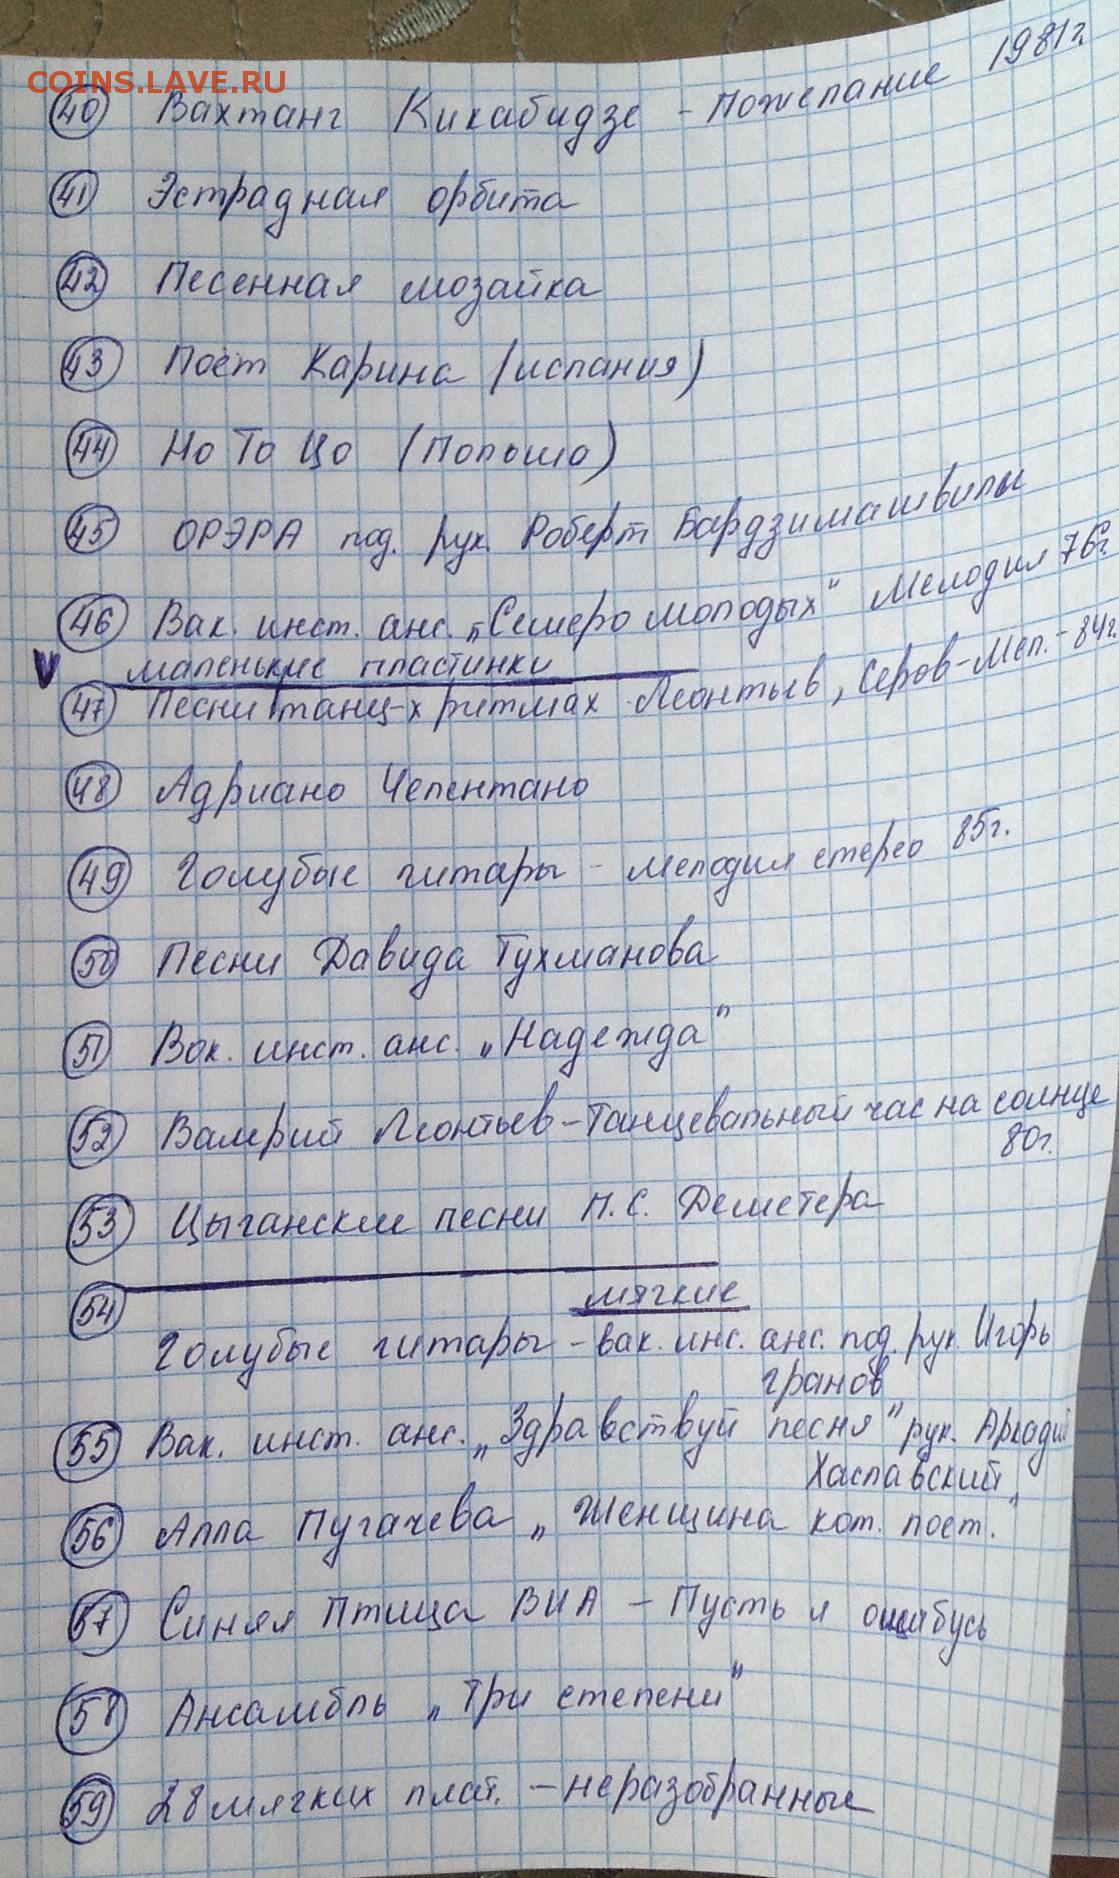 COINS.LAVE.RU
40 Вахтанг Кикабидзе - Пожелание 1981г
41 Эстрадная орбита
42 Песенная мозайка
43 Поёт Карина (испания)
44 Но То Цо (Польша)
45 ОРЭРА под. рук. Роберт Бардзимашвилы
46 Вак. инст. анс. „Семеро молодых" Мелодия 76г.
V маленькие пластинки
47 Песни танц-х ритмах Леонтьев, Серов-Мел. - 84г.
48 Адриано Челентано
49 Голубые гитары - мелодия стерео 85г.
50 Песни Давида Тухманова
51 Вок. инст. анс. „Надежда"
52 Валерий Леонтьев - Танцевальный час на солнце
80г.
53 Цыганские песни П.С. Деметера
54 мягкие
Голубые гитары - вак. инс. анс. под. рук. Игорь
гранов
55 Вак. инст. анс. „Здравствуй песня" рук. Аркадий
Хаславский
56 Алла Пугачева „Женщина кот. поет."
57 Синяя Птица ВИА - Пусть я ошибусь
58 Ансамбль „Три степени"
59 28 мягких плат. - неразобранные